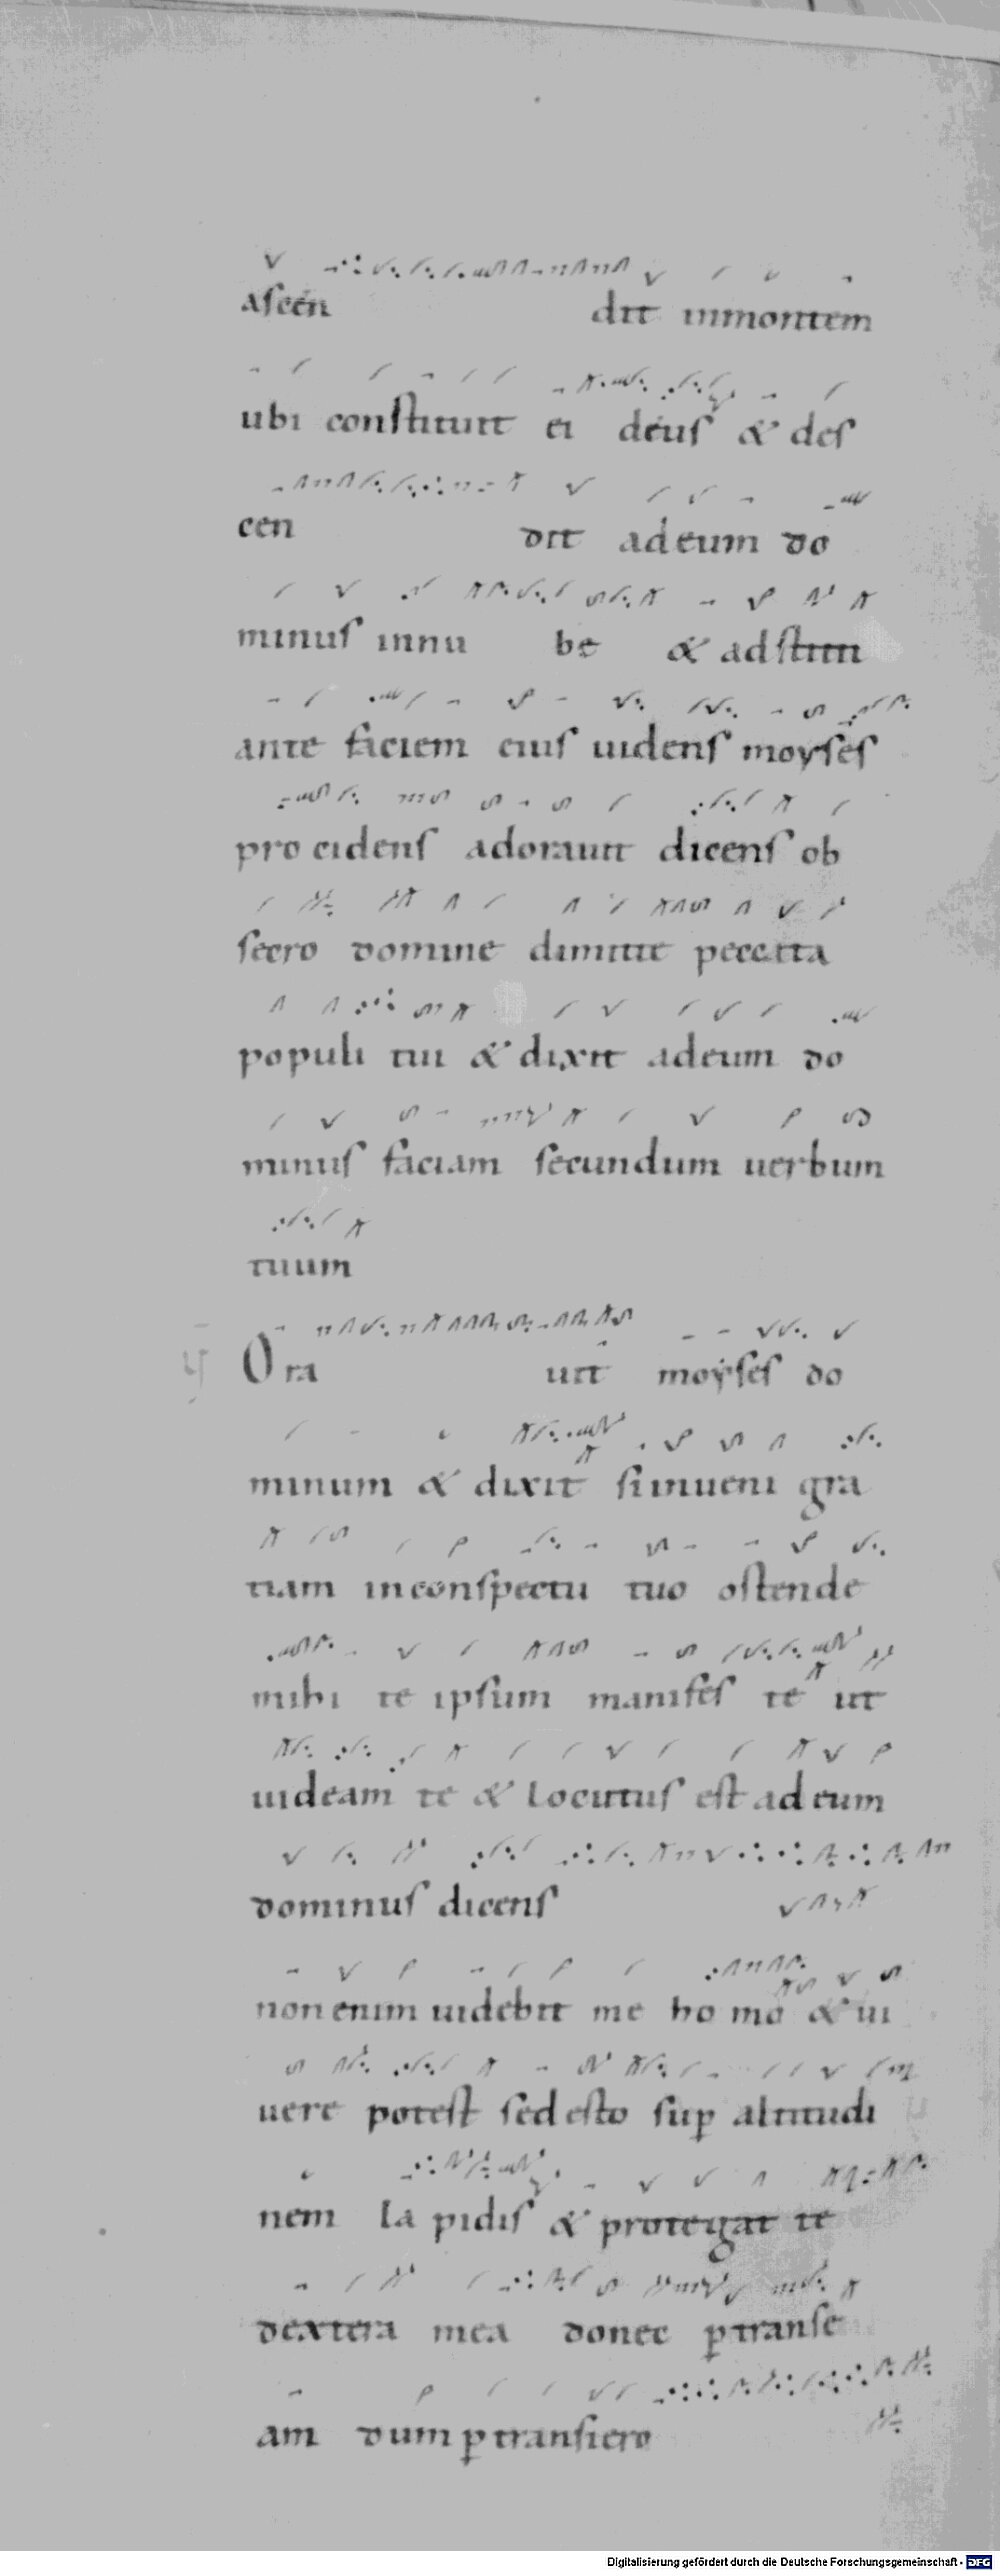 ascen dit inmontem
ubi constituit ei deus & des
cen dit adeum do
minus innu be & adstitit
ante faciem eius uidens moyses
procidens adorauit dicens ob
secro domine dimitte peccata
populi tui & dixit adeum do
minus faciam secundum uerbum
tuum
Ora uit moyses do
minum & dixit si inueni gra
tiam inconspectu tuo ostende
mihi te ipsum manifes te ut
uideam te & locutus est adeum
dominus dicens
non enim uidebit me homo & ui
uere potest sed esto sup altitudi
nem lapidis & protegat te
dextera mea donec ptranse
am dum ptransiero
Digitalisierung gefördert durch die Deutsche Forschungsgemeinschaft - DFG